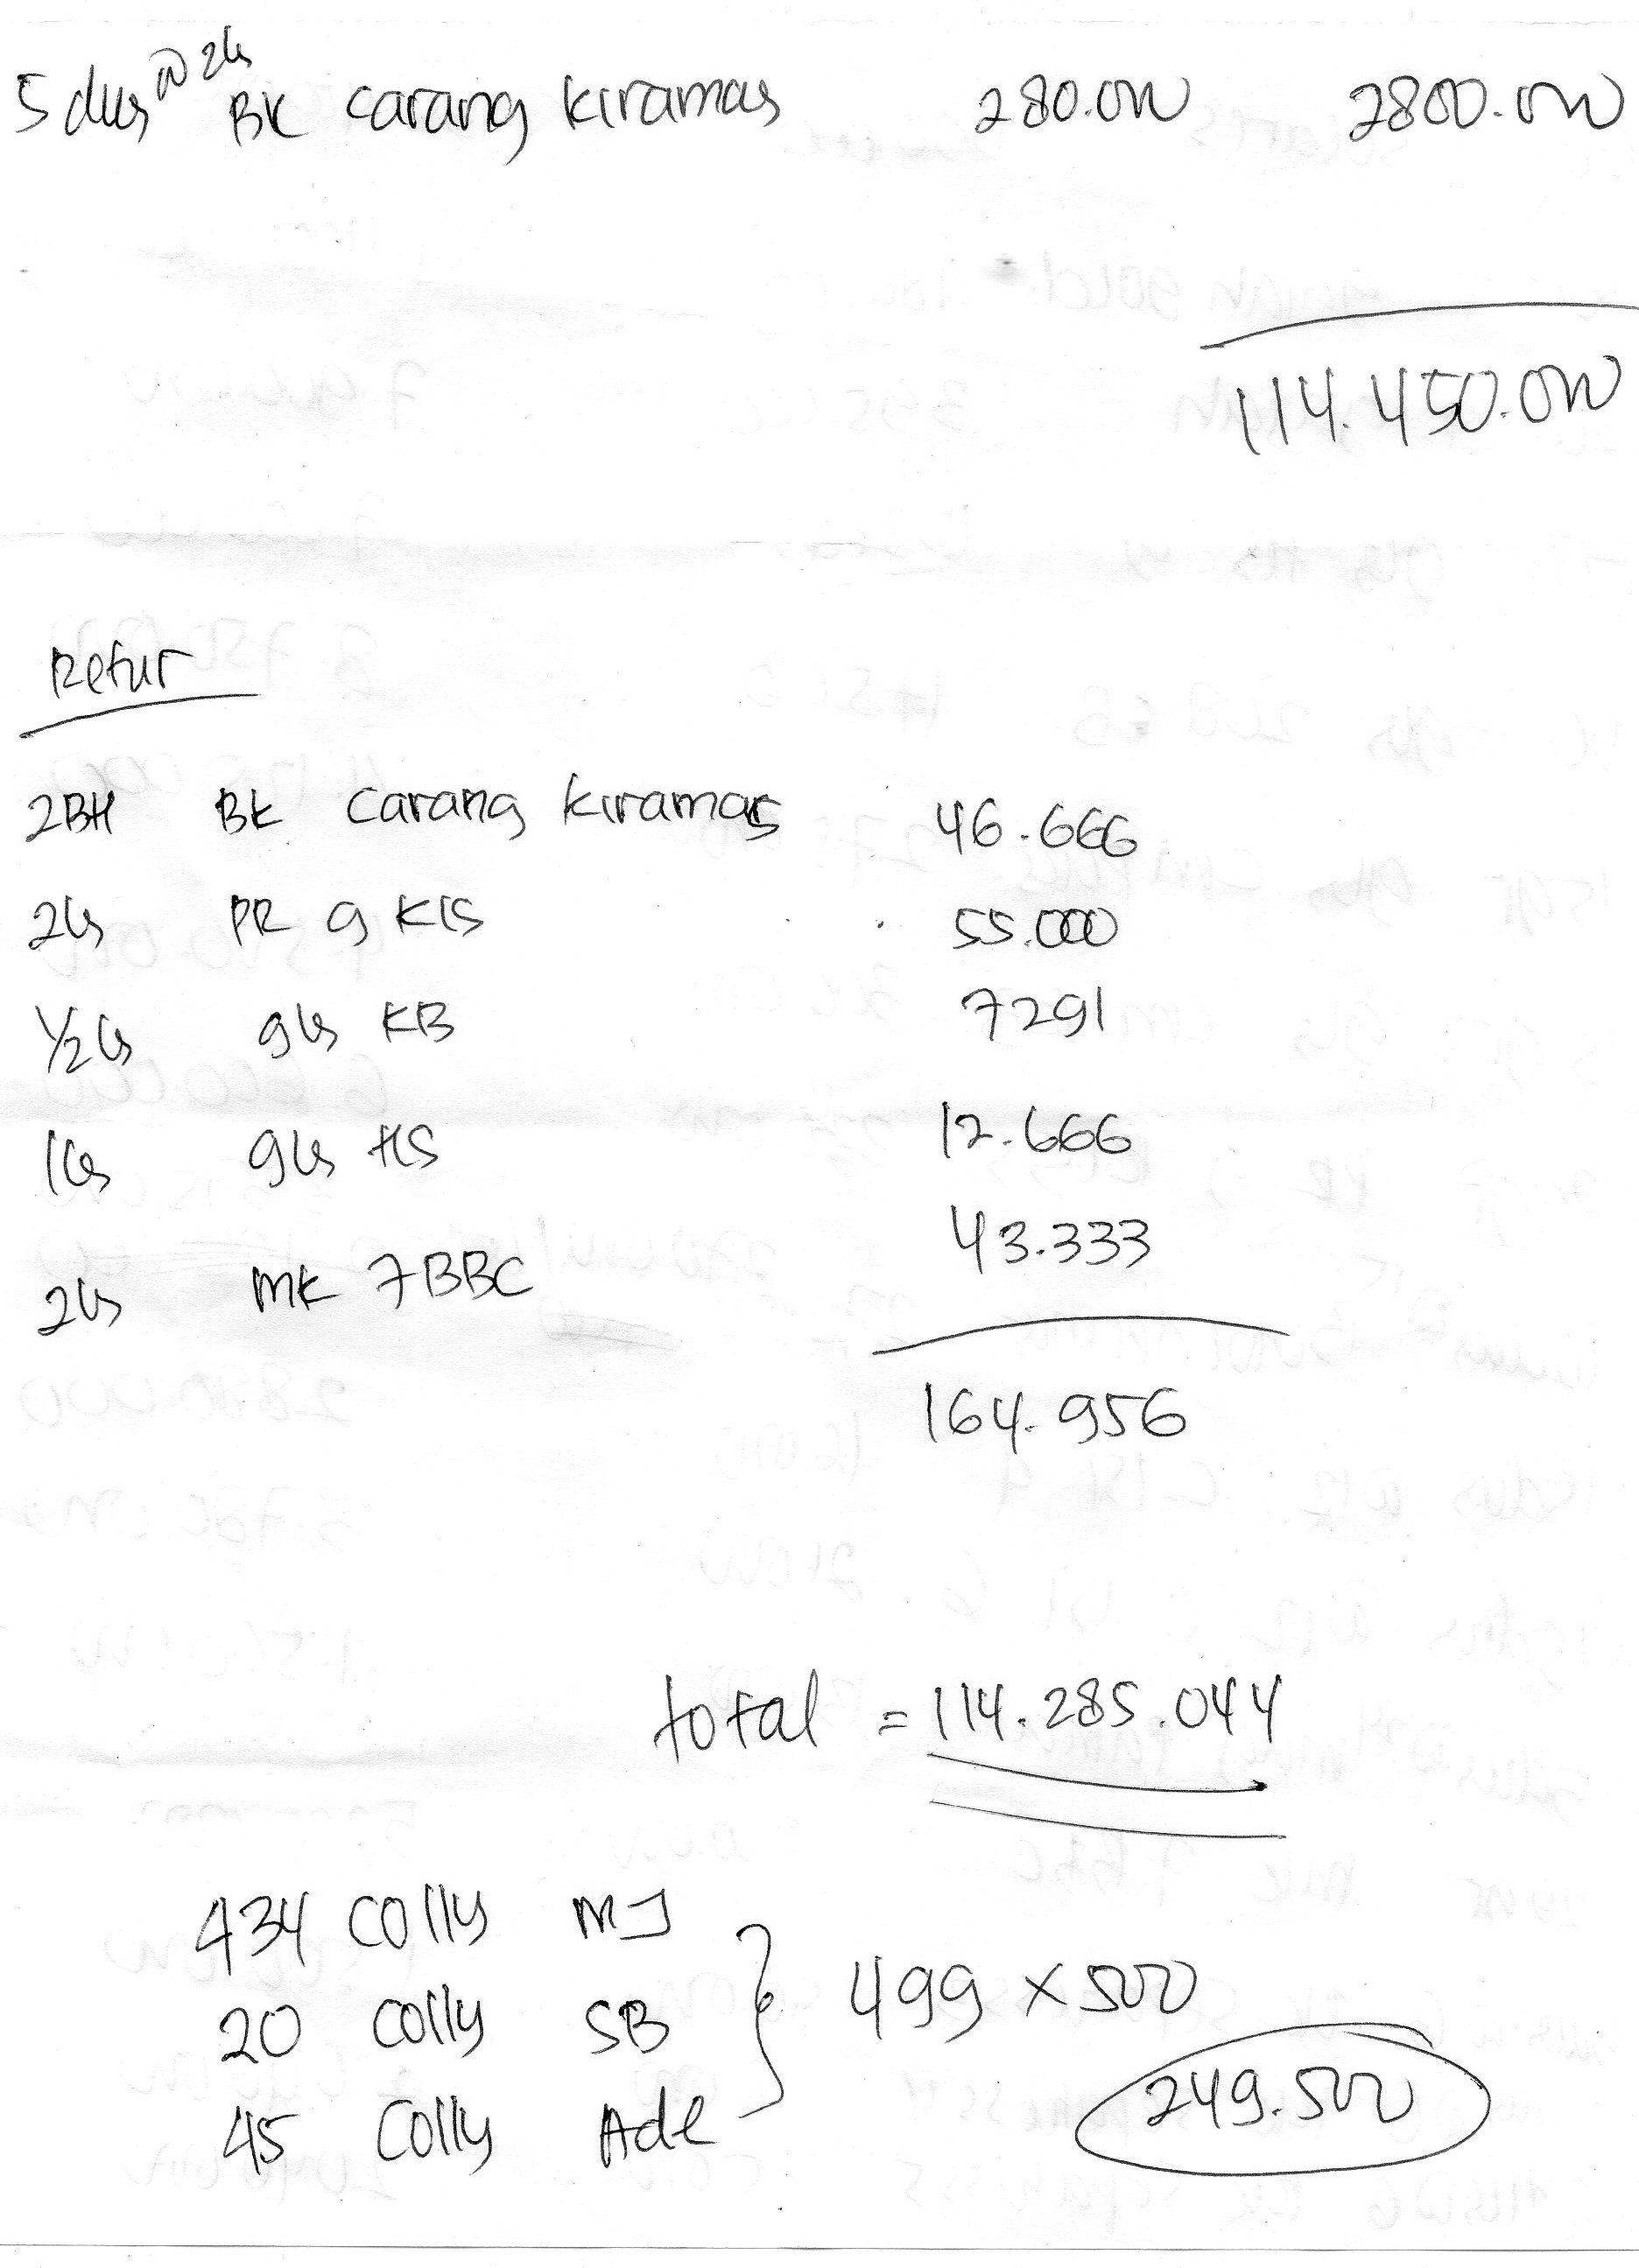 5 dus @ 2ls BK carang kiramas 280.000 2800.000
114.450.000
Retur
2BH BK Carang kiramas 46.666
2ls PR g KIS 55.000
1/2 ls gls KB 7291
1ls gls HS 12.666
2ls MK 7BBC 43.333
164.956
total = 114.285.044
434 Colly MJ
20 Colly SB
45 Colly Ade
499 x 500
249.500